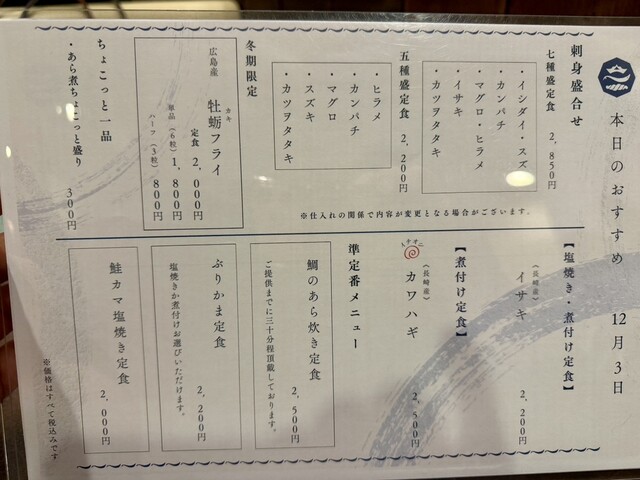 本日のおすすめ 12月3日
刺身盛合せ
七種盛定食 2,850円
・イシダイ・スズキ
・カンパチ
・マグロ・ヒラメ
・イサキ
・カツヲタタキ
五種盛定食 2,200円
・ヒラメ
・カンパチ
・マグロ
・スズキ
・カツヲタタキ
※仕入れの関係で内容が変更となる場合がございます。
冬期限定
広島産 牡蛎フライ
カキ
定食 2,000円
単品(6粒) 1,800円
ハーフ(3粒) 800円
ちょこっと一品
・あら煮ちょこっと盛り 300円
【塩焼き・煮付け定食】
(長崎産)
イサキ 2,200円
【煮付け定食】
(長崎産)
カワハギ 2,500円
準定番メニュー
鯛のあら炊き定食 2,500円
ご提供までに三十分程頂戴しております。
ぶりかま定食 2,200円
塩焼きか煮付けお選びいただけます。
鮭カマ塩焼き定食 2,000円
※価格はすべて税込みです